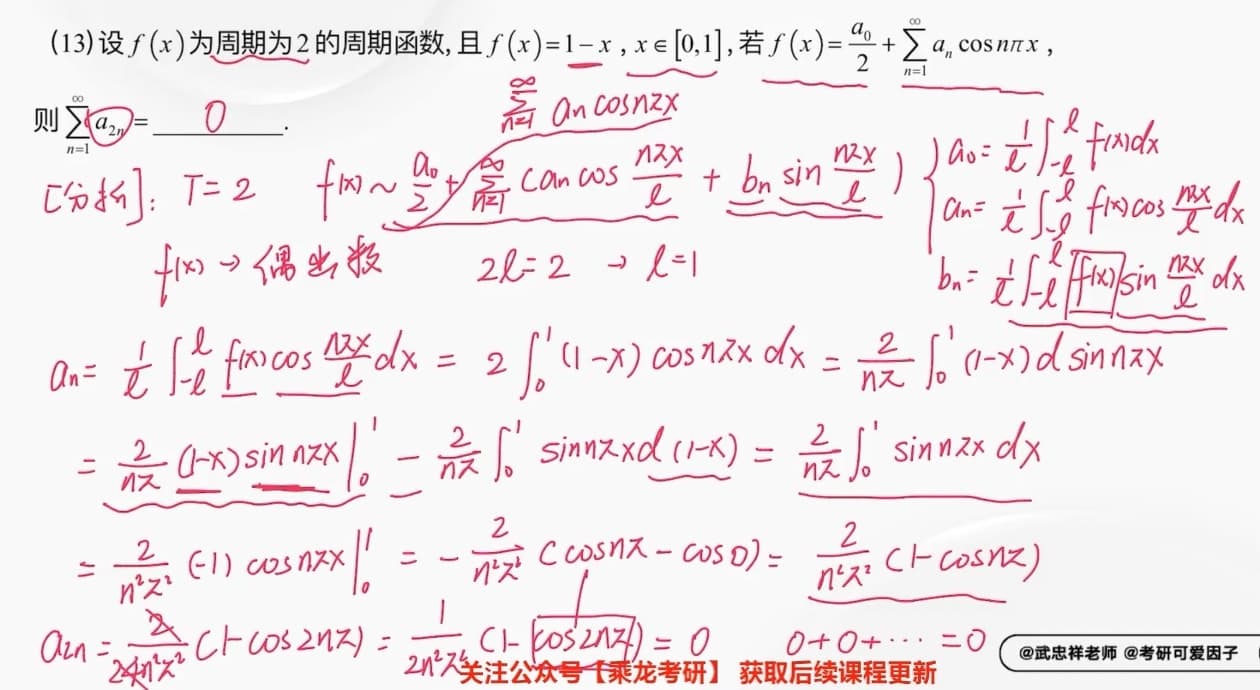 (13)设 f(x)为周期为2的周期函数,且 f(x)=1−x, x∈[0,1],若 f(x)=a₀/2+∑_{n=1}^{∞} aₙ cos nπx,
则∑_{n=1}^{∞} a₂ₙ=___0___.
∑_{n=1}^{∞} an cosnπx
[分析]: T=2 f(x)~a₀/2+∑_{n=1}^{∞}(an cos nπx/l + bn sin nπx/l)
a₀=1/l∫_{-l}^{l} f(x)dx
an=1/l∫_{-l}^{l} f(x)cos nπx/l dx
bn=1/l∫_{-l}^{l} f(x)sin nπx/l dx
f(x)→偶函数 2l=2 → l=1
an=1/l∫_{-l}^{l} f(x)cos nπx/l dx = 2∫_0^1(1-x)cosnπx dx = 2/nπ∫_0^1(1-x)d sinnπx
= 2/nπ(1-x)sin nπx|_0^1 − 2/nπ∫_0^1 sinnπx d(1-x) = 2/nπ∫_0^1 sinnπx dx
= 2/n²π²(-1)cosnπx|_0^1 = −2/n²π²(cosnπ−cos0)= 2/n²π²(1-cosnπ)
a2n=2/4n²π²(1-cos2nπ)=1/2n²π²(1-cos2nπ)=0 0+0+⋯=0
@武忠祥老师 @考研可爱因子
关注公众号【乘龙考研】 获取后续课程更新